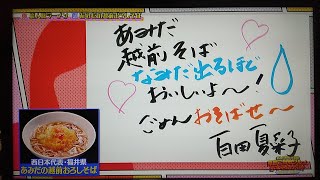 あみだ
越前そば
なみだ出るほど
おいしいよ〜!
ごめんおそばせ〜
百田夏菜子
西日本代表・福井県
あみだの越前おろしそば